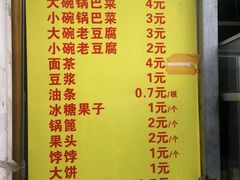 大碗锅巴菜 4元
小碗锅巴菜 3元
大碗老豆腐 3元
小碗老豆腐 2元
面茶 4元
豆浆 1元
油条 0.7元/根
冰糖果子 1元/个
锅篦 2元/个
果头 2元/个
饽饽 1元/个
大饼